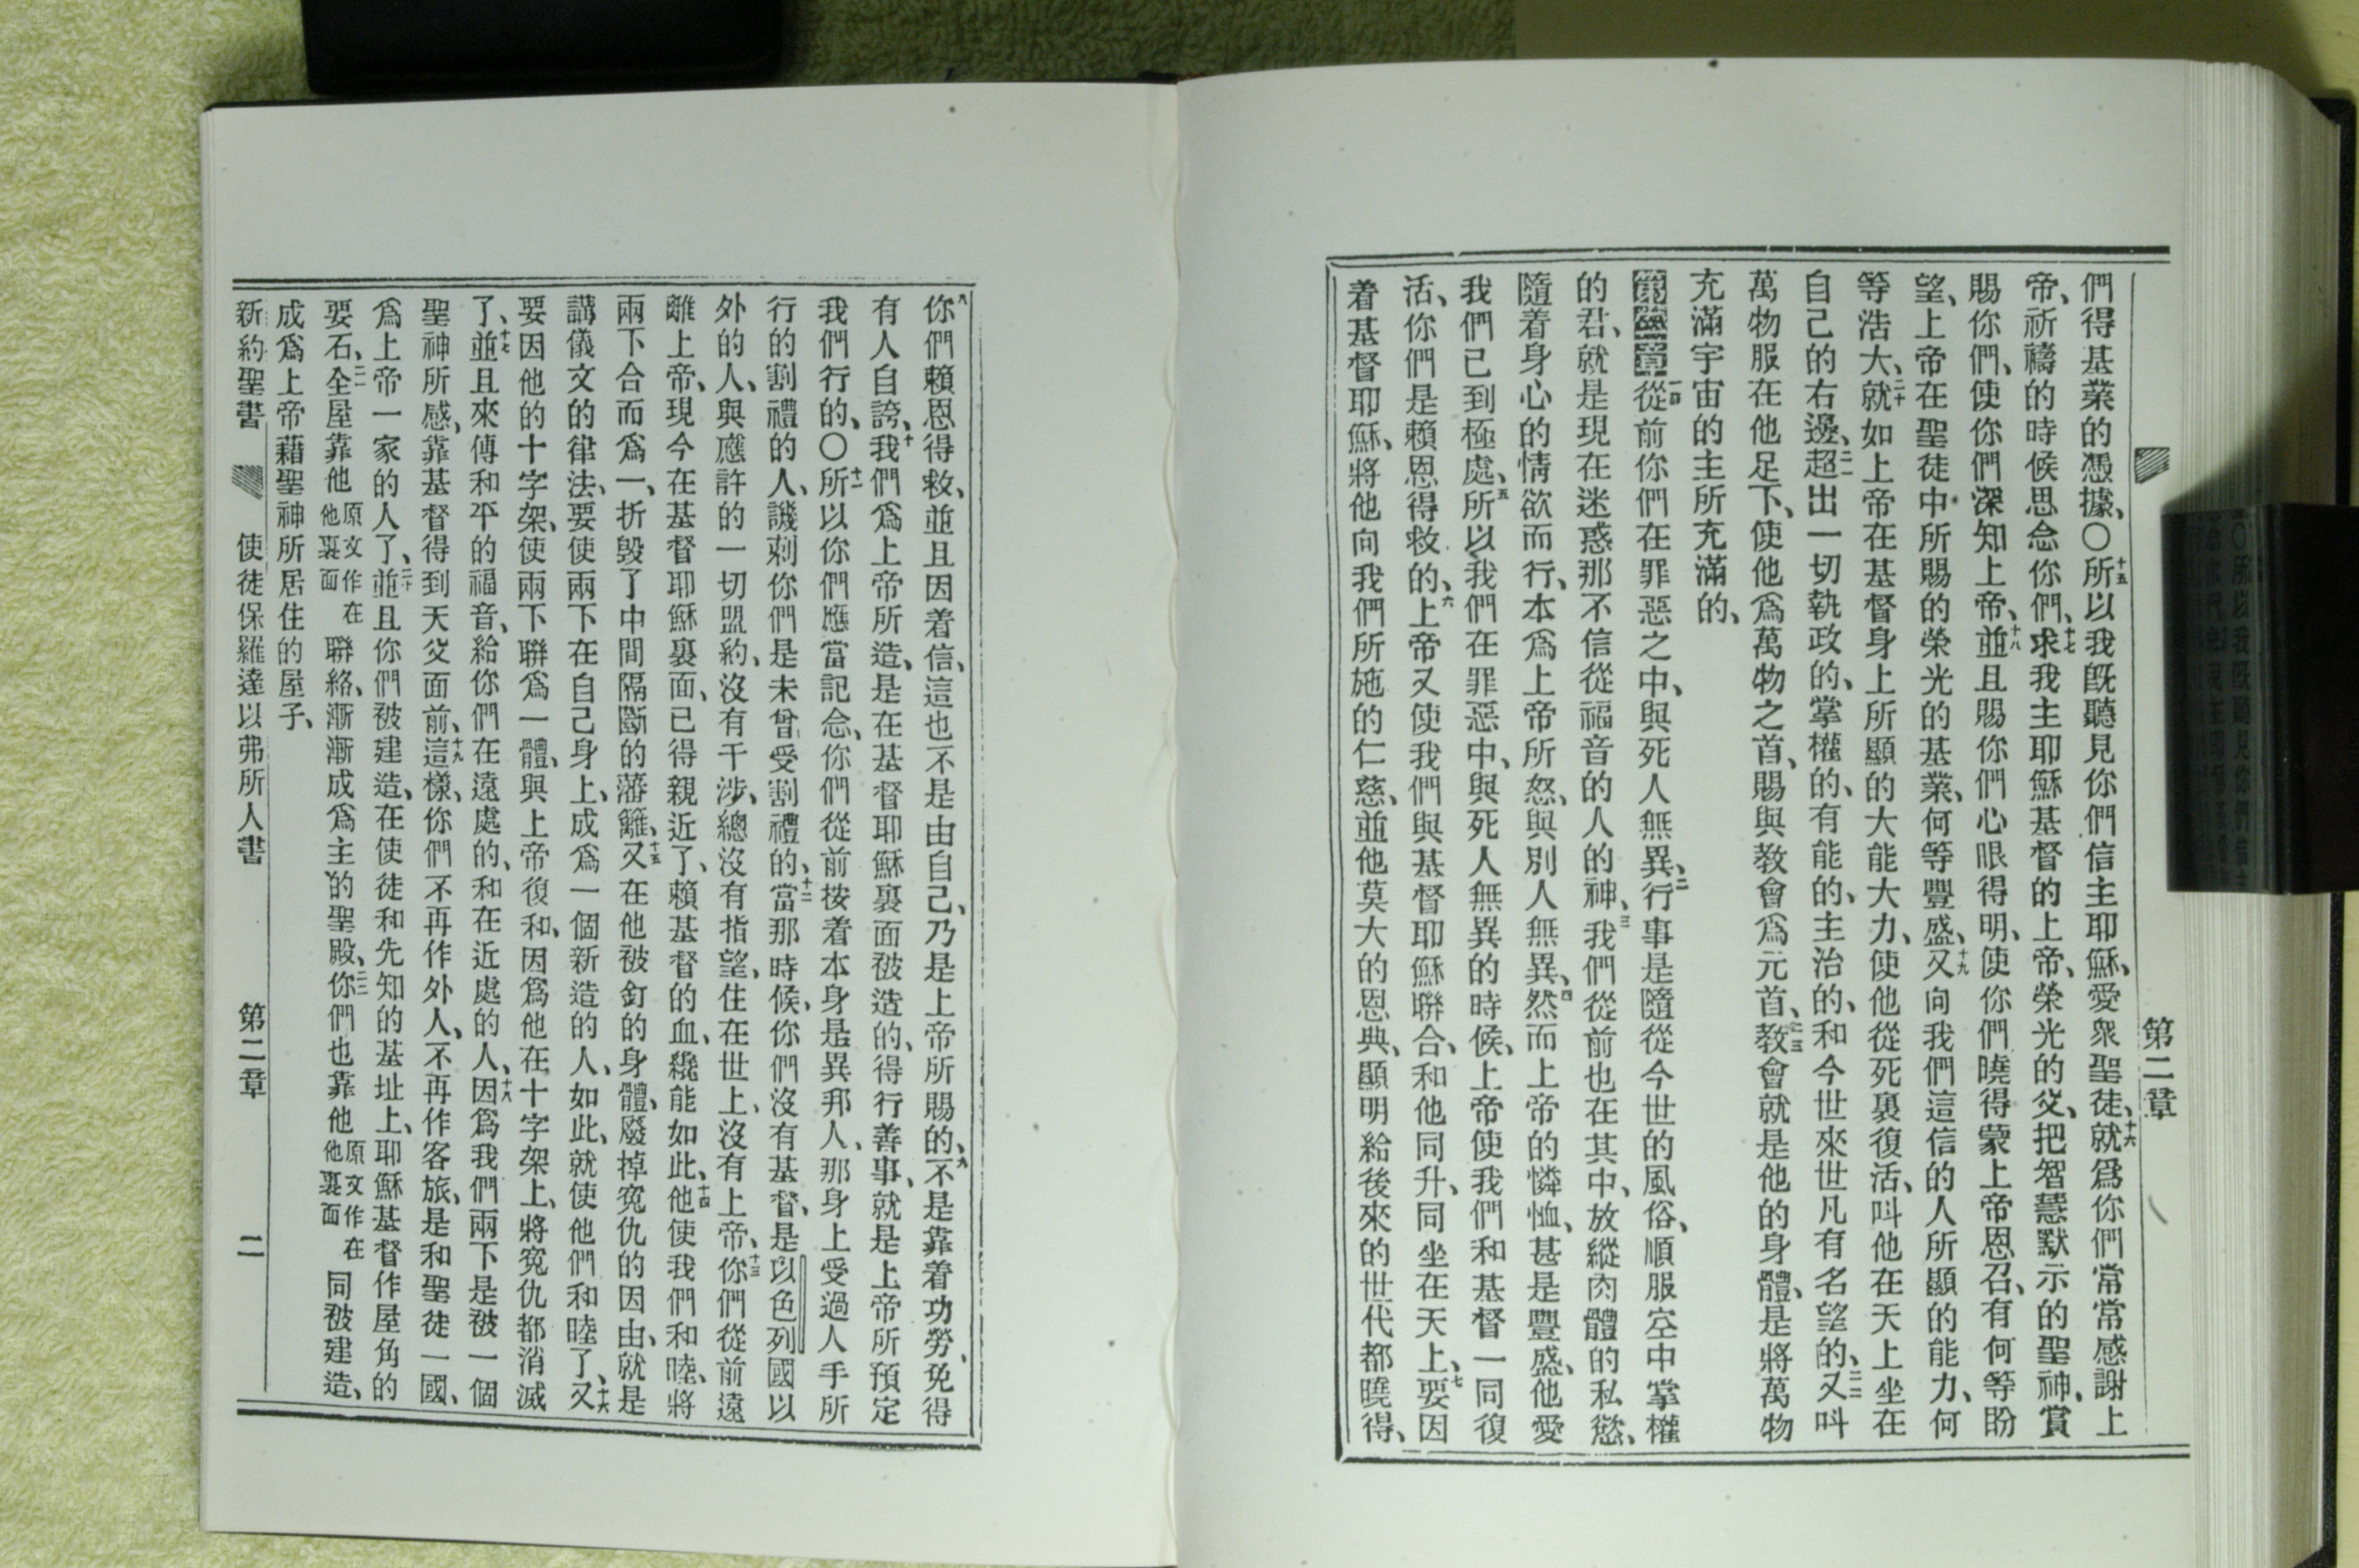 第二章
們得基業的憑據、〇十五所以我既聽見你們信主耶穌、愛衆聖徒、十六就爲你們常常感謝上
帝、祈禱的時候思念你們、十七求我主耶穌基督的上帝、榮光的父、把智慧默示的聖神、賞
賜你們、使你們深知上帝、十八並且賜你們心眼得明、使你們曉得蒙上帝恩召、有何等盼
望、上帝在聖徒中所賜的榮光的基業、何等豐盛、十九又向我們這信的人所顯的能力、何
等浩大、二十就如上帝在基督身上所顯的大能大力、使他從死裏復活、叫他在天上坐在
自己的右邊、二一超出一切執政的、掌權的、有能的、主治的、和今世來世凡有名望的、二二又叫
萬物服在他足下、使他爲萬物之首、賜與教會爲元首、二三教會就是他的身體、是將萬物
充滿宇宙的主所充滿的、
第二章一從前你們在罪惡之中、與死人無異、二行事是隨從今世的風俗、順服空中掌權
的君、就是現在迷惑那不信從福音的人的神、三我們從前也在其中、放縱肉體的私慾、
隨着身心的情欲而行、本爲上帝所怒、與別人無異、四然而上帝的憐恤、甚是豐盛、他愛
我們已到極處、五所以我們在罪惡中、與死人無異的時候、上帝使我們和基督一同復
活、你們是賴恩得救的、六上帝又使我們與基督耶穌聯合、和他同升、同坐在天上、七要因
着基督耶穌、將他向我們所施的仁慈、並他莫大的恩典、顯明給後來的世代都曉得、
八你們賴恩得救、並且因着信、這也不是由自己、乃是上帝所賜的、九不是靠着功勞、免得
有人自誇、十我們爲上帝所造、是在基督耶穌裏面被造的、得行善事、就是上帝所預定
我們行的、〇十一所以你們應當記念、你們從前按着本身是異邦人、那身上受過人手所
行的割禮的人、譏刺你們是未曾受割禮的、十二當那時候、你們沒有基督、是以色列國以
外的人、與應許的一切盟約、沒有干涉、總沒有指望、住在世上、沒有上帝、十三你們從前遠
離上帝、現今在基督耶穌裏面、已得親近了、賴基督的血、纔能如此、十四他使我們和睦、將
兩下合而爲一、折毀了中間隔斷的藩籬、十五又在他被釘的身體、廢掉寃仇的因由、就是
講儀文的律法、要使兩下在自己身上、成爲一個新造的人、如此、就使他們和睦了、十六又
要因他的十字架、使兩下聯爲一體、與上帝復和、因爲他在十字架上、將寃仇都消滅
了、十七並且來傳和平的福音、給你們在遠處的、和在近處的人、十八因爲我們兩下是被一個
聖神所感、靠基督得到天父面前、十九這樣、你們不再作外人、不再作客旅、是和聖徒一國、
爲上帝一家的人了、二十並且你們被建造、在使徒和先知的基址上、耶穌基督作屋角的
要石、二一全屋靠他原文作在他裏面聯絡、漸漸成爲主的聖殿、二二你們也靠他原文作在他裏面同被建造、
成爲上帝藉聖神所居住的屋子、
新約聖書 使徒保羅達以弗所人書 第二章 二